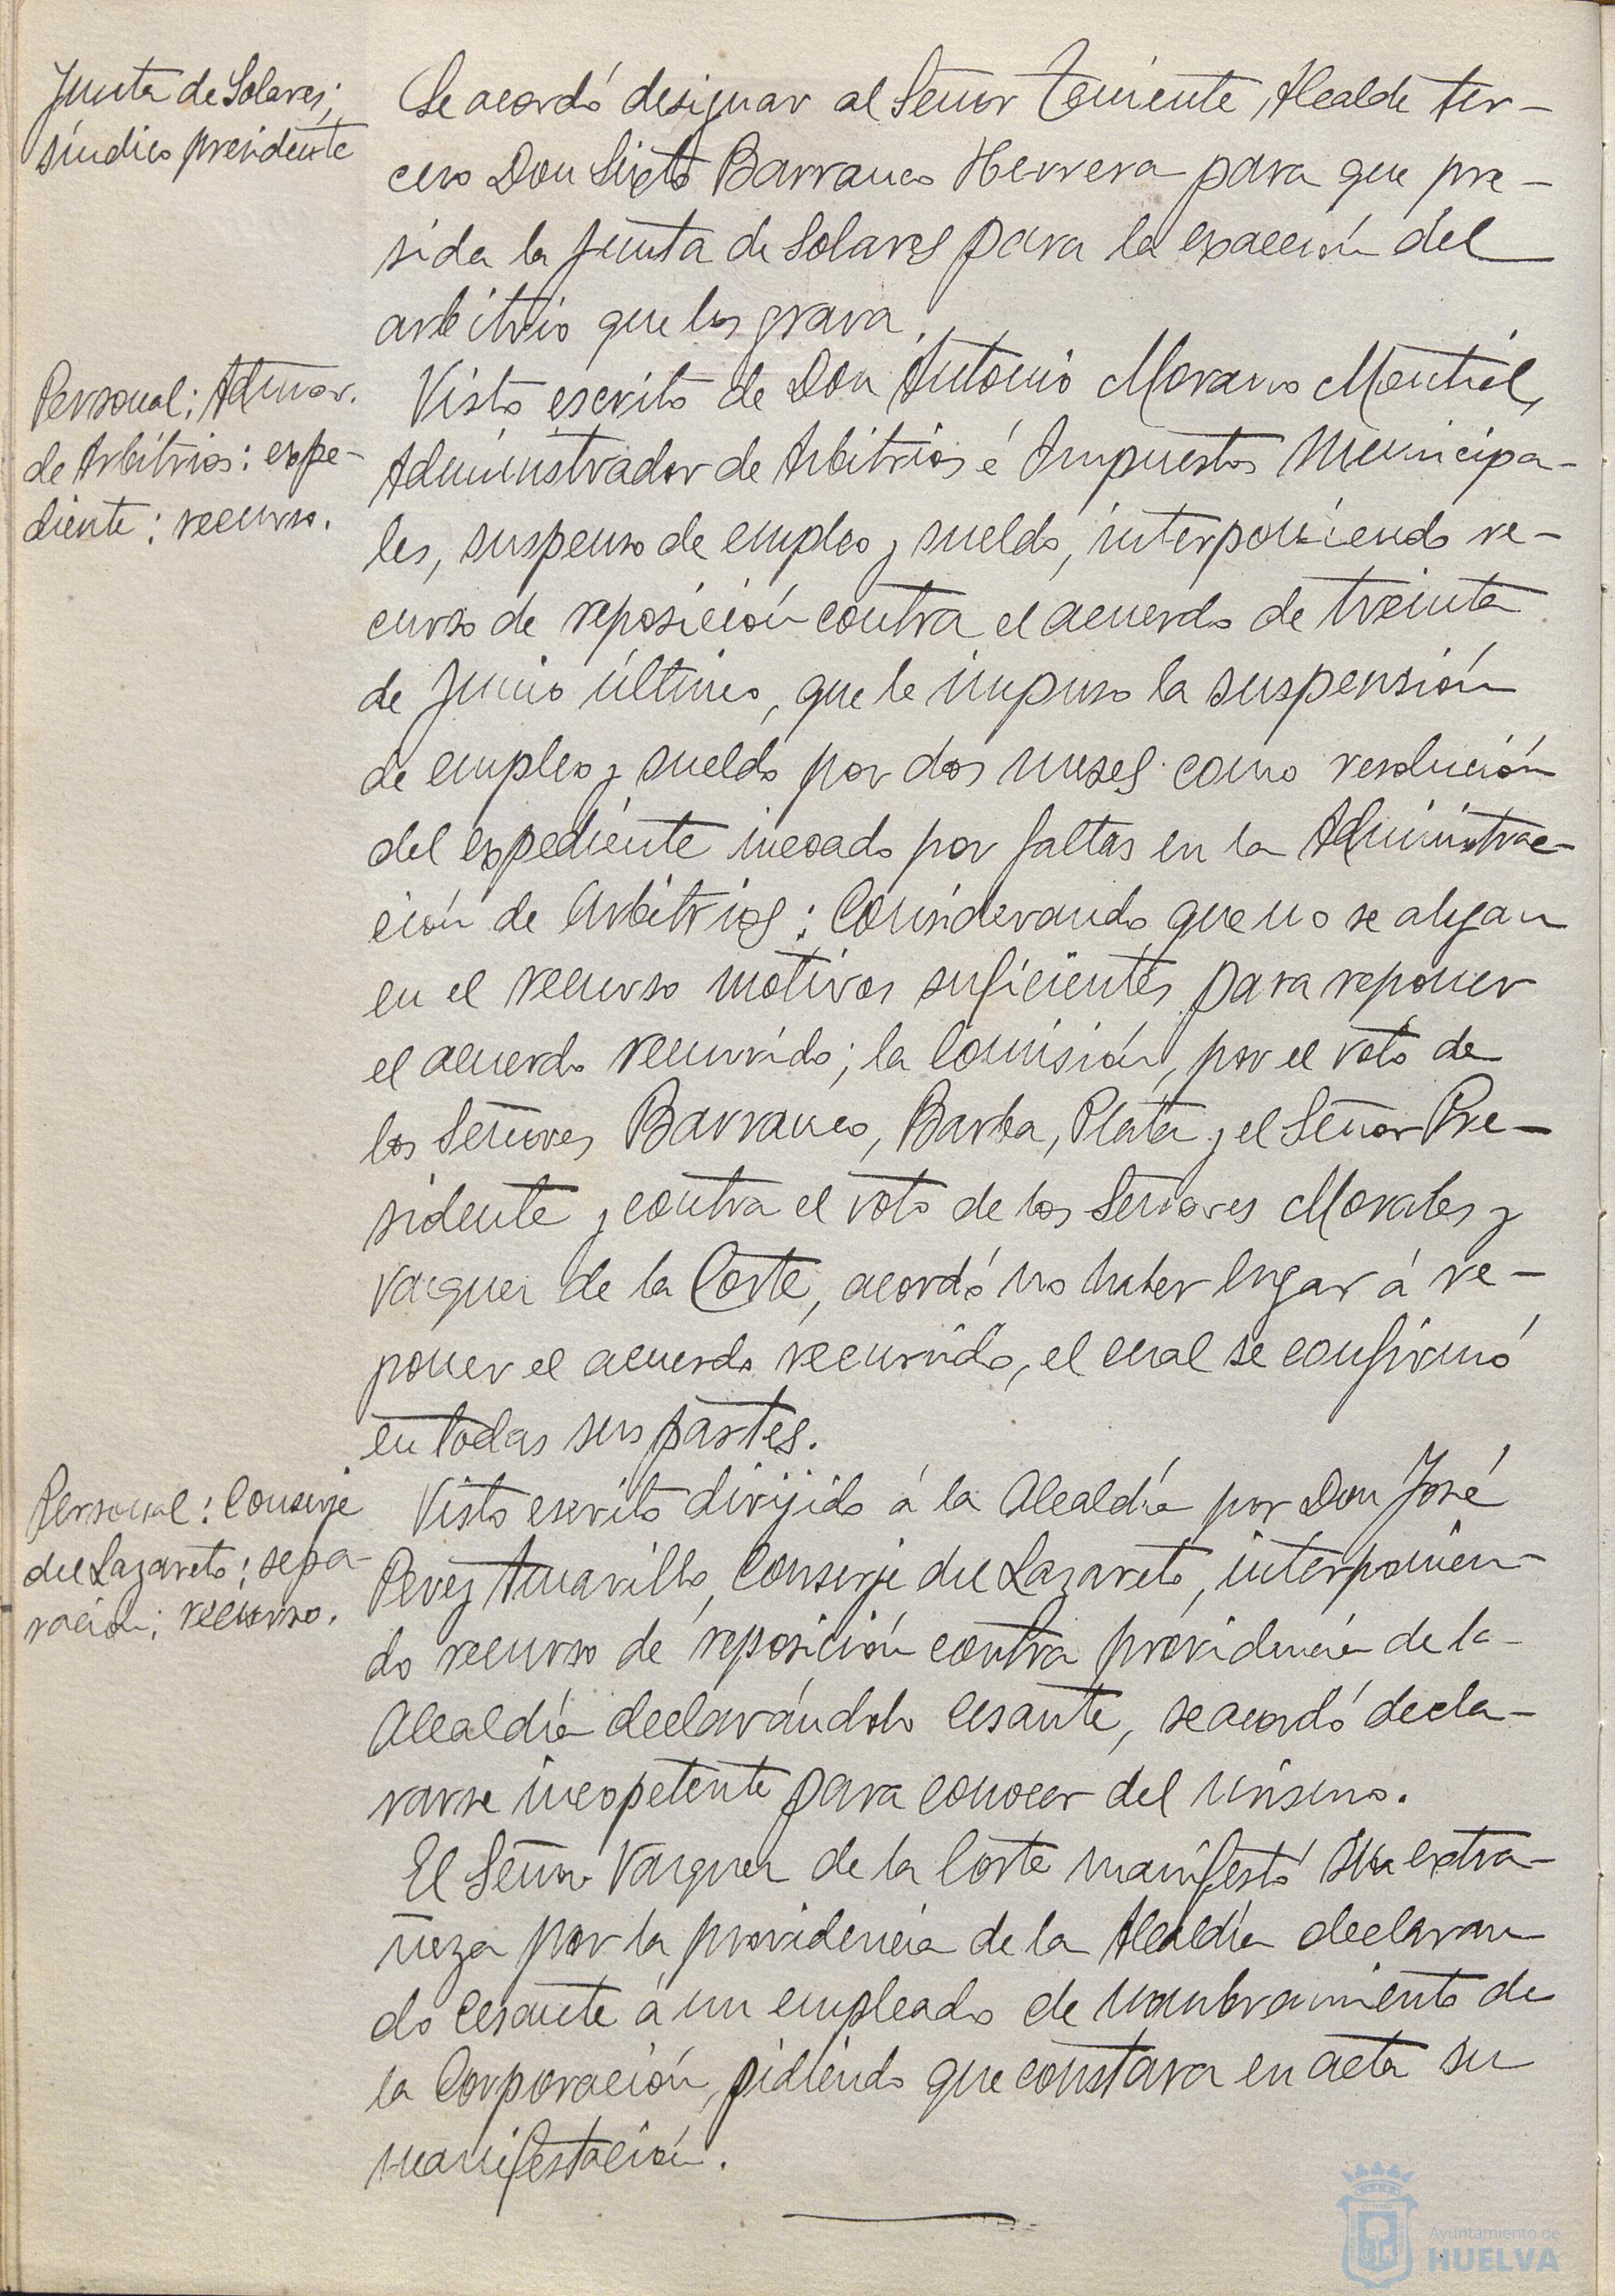 Junta de Solares;
síndico presidente
Se acordó designar al Señor Teniente Alcalde ter-
cero Don Sixto Barranco Herrera para que pre-
sida la Junta de Solares para la exacción del
arbitrio que los grava.
Personal: Admor.
de Arbitrios: expe-
diente: recurso.
Visto escrito de Don Antonio Morano Montiel,
Administrador de Arbitrios é Impuestos Municipa-
les, suspenso de empleo y sueldo, interponiendo re-
curso de reposición contra el acuerdo de treinta
de Junio último, que le impuso la suspensión
de empleo y sueldo por dos meses como resolución
del expediente incoado por faltas en la Administrac-
ción de Arbitrios: Considerando que no se alegan
en el recurso motivos suficientes para reponer
el acuerdo recurrido; la Comisión, por el voto de
los Señores Barranco, Barba, Plata y el Señor Pre-
sidente y contra el voto de los Señores Morales y
Vazquez de la Corte, acordó no haber lugar á re-
poner el acuerdo recurrido, el cual se confirmó
en todas sus partes.
Personal: Conserje
del Lazareto: sepa-
ración; recurso.
Visto escrito dirijido á la Alcaldía por Don José
Perez Amarillo, Conserje del Lazareto, interponien-
do recurso de reposición contra providencia de la
Alcaldía declarándolo cesante, se acordó decla-
rarse incopetente para conocer del mismo.
El Señor Vazquez de la Corte manifestó su extra-
ñeza por la providencia de la Alcaldía declaran
do cesante á un empleado de nombramiento de
la Corporación, pidiendo que constara en acta su
manifestación.
Ayuntamiento de
HUELVA